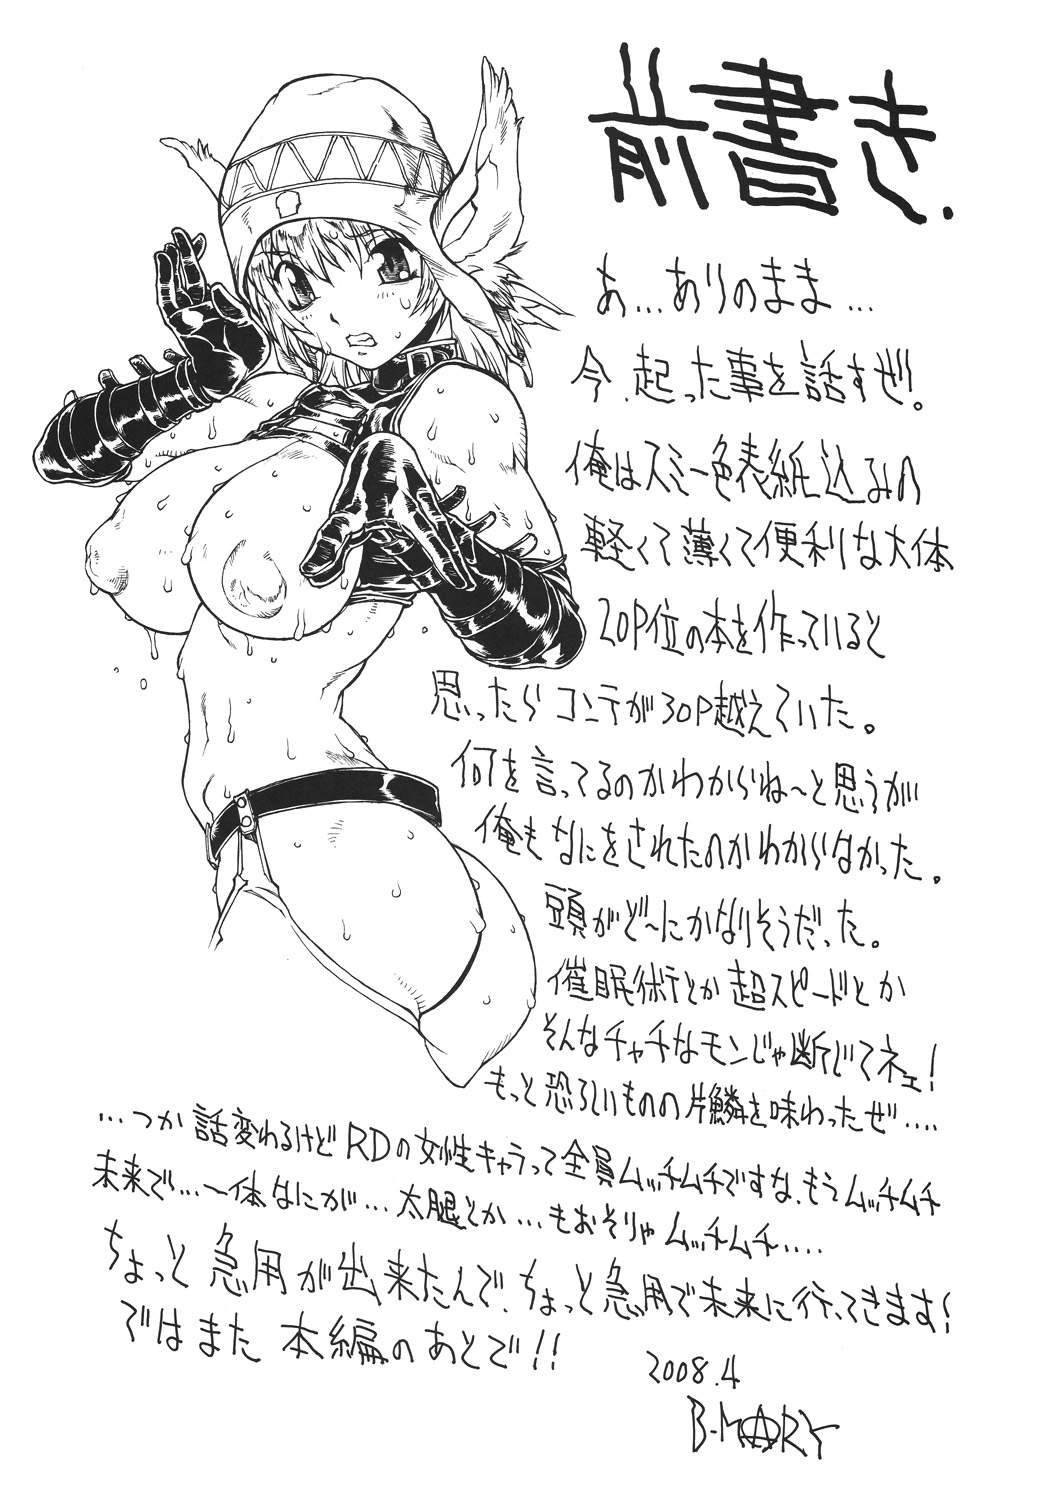 前書き.
あ…ありのまま…
今、起った事を話すぜ!。
俺はスミ一色表紙込みの
軽くて薄くて便利な大体
20P位の本を作っていると
思ったらコンテが30P越えていた。
何を言ってるのかわからね～と思うが
俺もなにをされたのかわからなかった。
頭がど～にかなりそうだった。
催眠術とか超スピードとか
そんなチャチなモンじゃ断じてネェ!
もっと恐ろしいものの片鱗を味わったぜ‥‥
…つか話変わるけどRDの女性キャラって全員ムッチムチですな、もうムッチムチ
未来で…一体なにが…太腿とか…もおそりゃムッチムチ‥‥
ちょっと急用が出来たんで、ちょっと急用で未来に行ってきます!
ではまた本編のあとで!!
2008.4
B-MARY